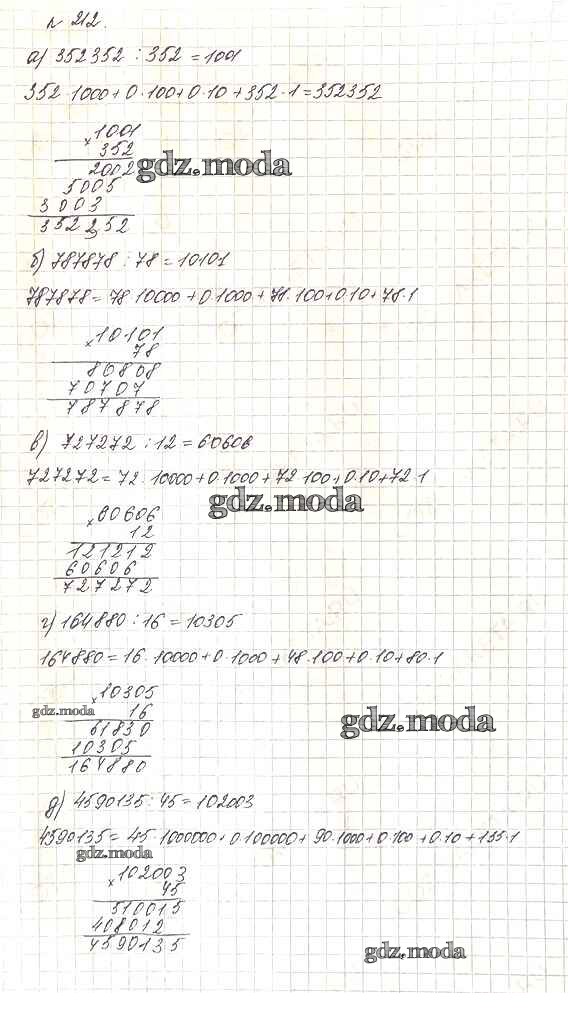 № 212.
а) 352352 : 352 = 1001
352 · 1000 + 0 · 100 + 0 · 10 + 352 · 1 = 352352
× 1001
352
2002
gdz.moda
5005
3003
352352
б) 787878 : 78 = 10101
787878 = 78 · 10000 + 0 · 1000 + 78 · 100 + 0 · 10 + 78 · 1
× 10101
78
80808
70707
787878
в) 727272 : 12 = 60606
727272 = 72 · 10000 + 0 · 1000 + 72 · 100 + 0 · 10 + 72 · 1
gdz.moda
× 60606
12
121212
60606
727272
г) 164880 : 16 = 10305
164880 = 16 · 10000 + 0 · 1000 + 48 · 100 + 0 · 10 + 80 · 1
× 10305
gdz.moda 16
gdz.moda
61830
10305
164880
д) 4590135 : 45 = 102003
4590135 = 45 · 1000000 + 0 · 100000 + 90 · 1000 + 0 · 100 + 0 · 10 + 135 · 1
gdz.moda
× 102003
45
510015
408012
4590135
gdz.moda